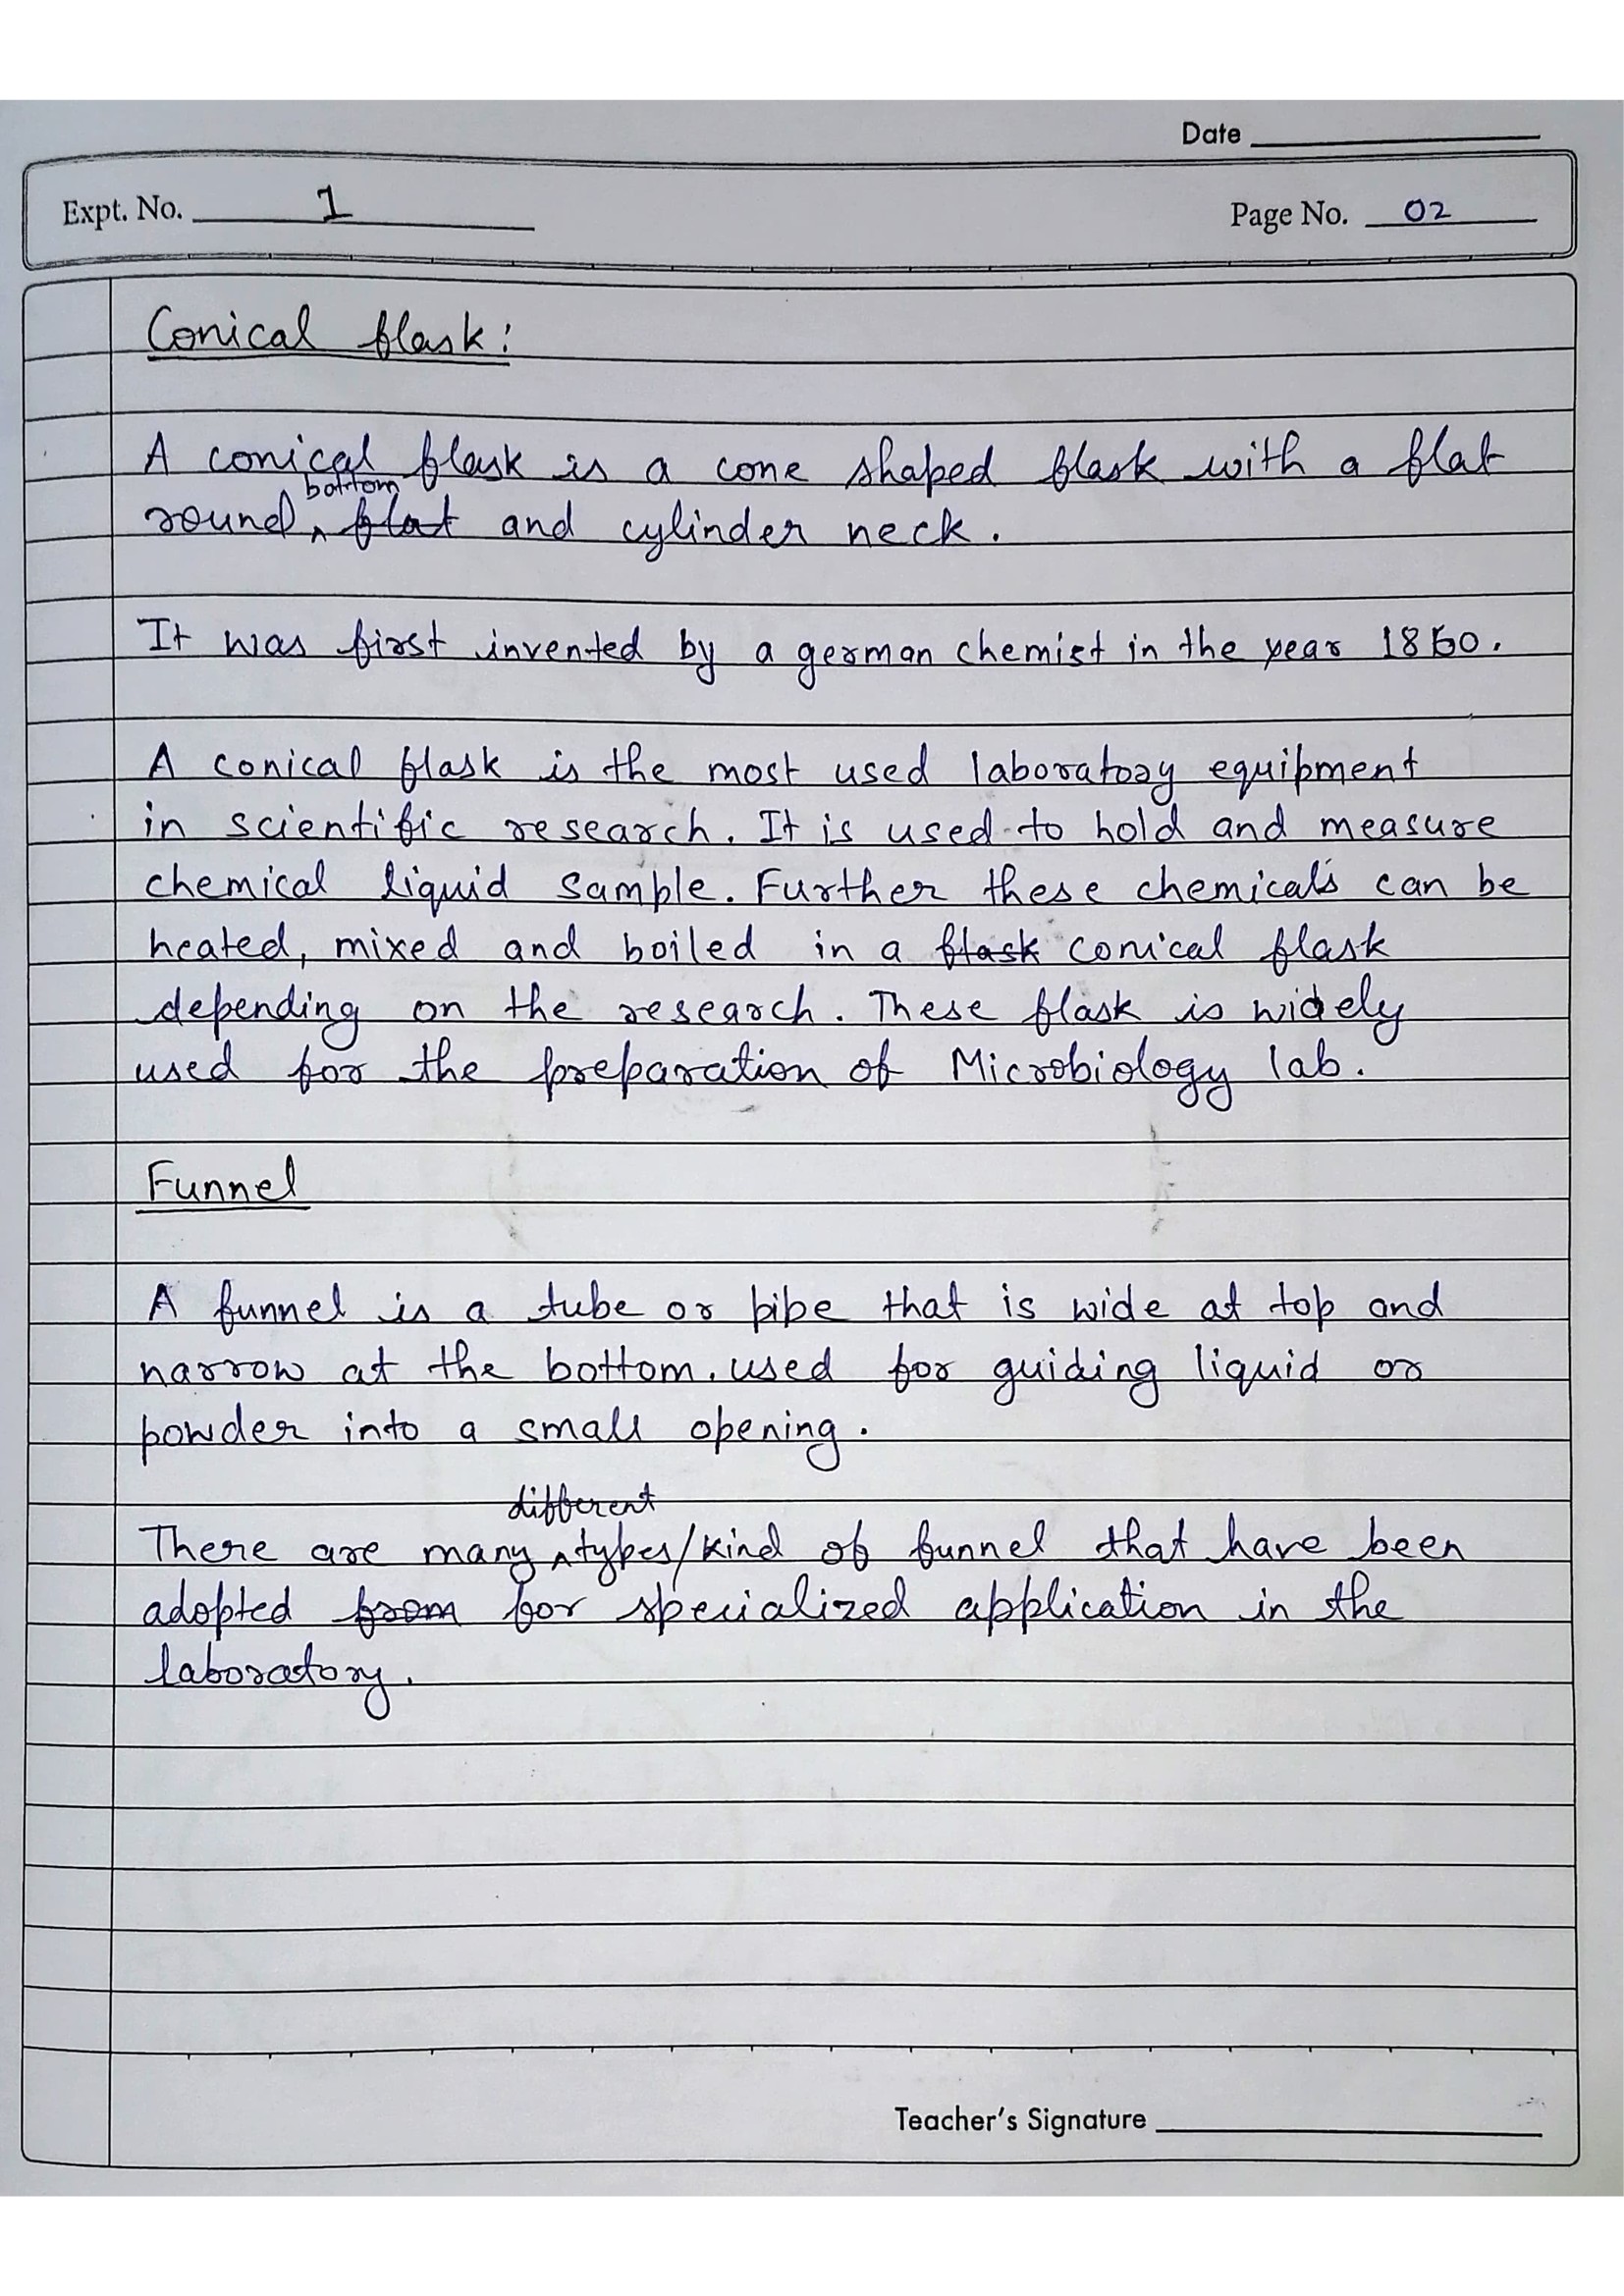 Date
Expt. No. 1
Page No. 02
Conical flask:
A conical flask is a cone shaped flask with a flat
bottom
round flat and cylinder neck.
It was first invented by a german chemist in the year 1860.
A conical flask is the most used laboratory equipment
in scientific research. It is used to hold and measure
chemical liquid sample. Further these chemicals can be
heated, mixed and boiled in a flask conical flask
depending on the research. These flask is widely
used for the preparation of Microbiology lab.
Funnel
A funnel is a tube or pipe that is wide at top and
narrow at the bottom, used for guiding liquid or
powder into a small opening.
different
There are many types/kind of funnel that have been
adopted from for specialized application in the
laboratory.
Teacher's Signature